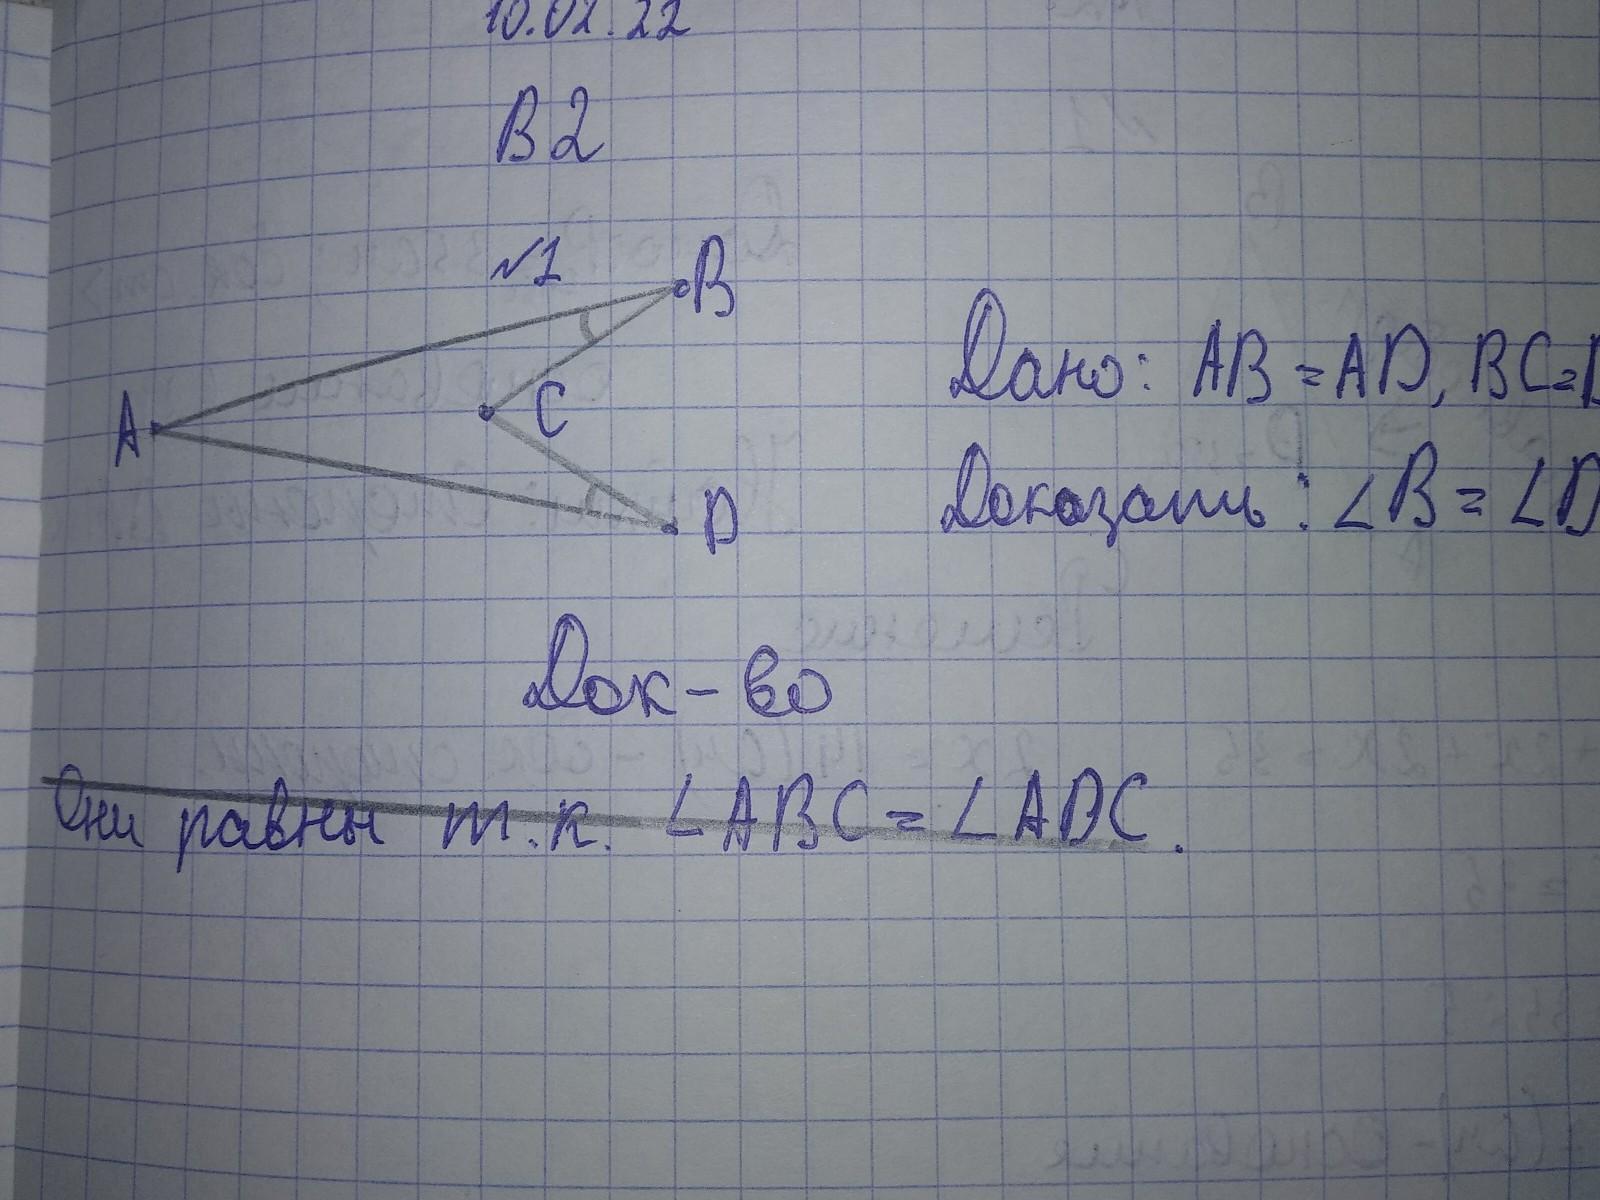 10.02.22
В2
№1
B
A
C
D
Дано: AB = AD, BC =
Доказать: ∠B = ∠D
Док-во
Они равны т.к. ∠ABC = ∠ADC.